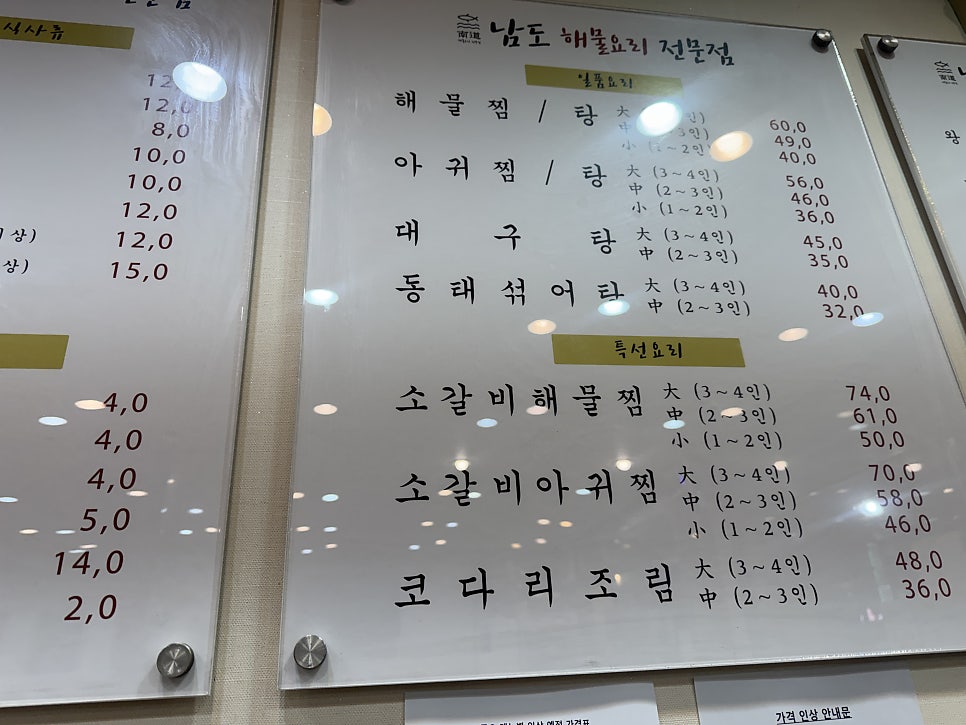 식사류
12,0
8,0
10,0
10,0
12,0
상) 12,0
상) 15,0
4,0
4,0
4,0
5,0
14,0
2,0
南道 남도 해물요리 전문점
일품요리
해물찜 / 탕 大 60,0
中 3인) 49,0
小 2인) 40,0
아귀찜 / 탕 大 (3~4인) 56,0
中 (2~3인) 46,0
小 (1~2인) 36,0
대구탕 大 (3~4인) 45,0
中 (2~3인) 35,0
동태섞어탕 大 (3~4인) 40,0
中 (2~3인) 32,0
특선요리
소갈비해물찜 大 (3~4인) 74,0
中 (2~3인) 61,0
小 (1~2인) 50,0
소갈비아귀찜 大 (3~4인) 70,0
中 (2~3인) 58,0
小 (1~2인) 46,0
코다리조림 大 (3~4인) 48,0
中 (2~3인) 36,0
왕
가격 인상 안내문